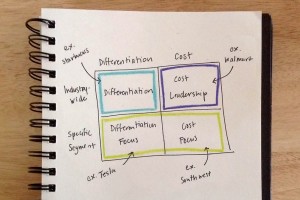 ex.
starbucks
Differentiation Cost
ex.
Walmart
Industry-
wide
Differentiation
Cost
Leadership
Specific
Segment
Differentiation
Focus
Cost
Focus
ex. Tesla
ex.
Southwest